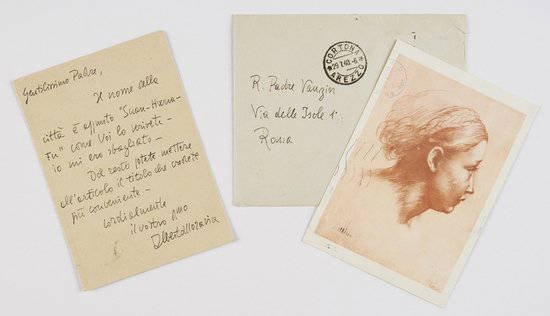 Gentilissimo Padre,
Il nome della
città è appunto "Suan-Hana-
Fu" come Voi lo scrivete -
io mi ero sbagliato -
Del resto potete mettere
all'articolo il titolo che credete
più conveniente -
Cordialmente
il vostro amo
Alberto Moravia
CORTONA
29.7.40.-6
AREZZO
R. Padre Vanzin
Via delle Isole 1.
Roma